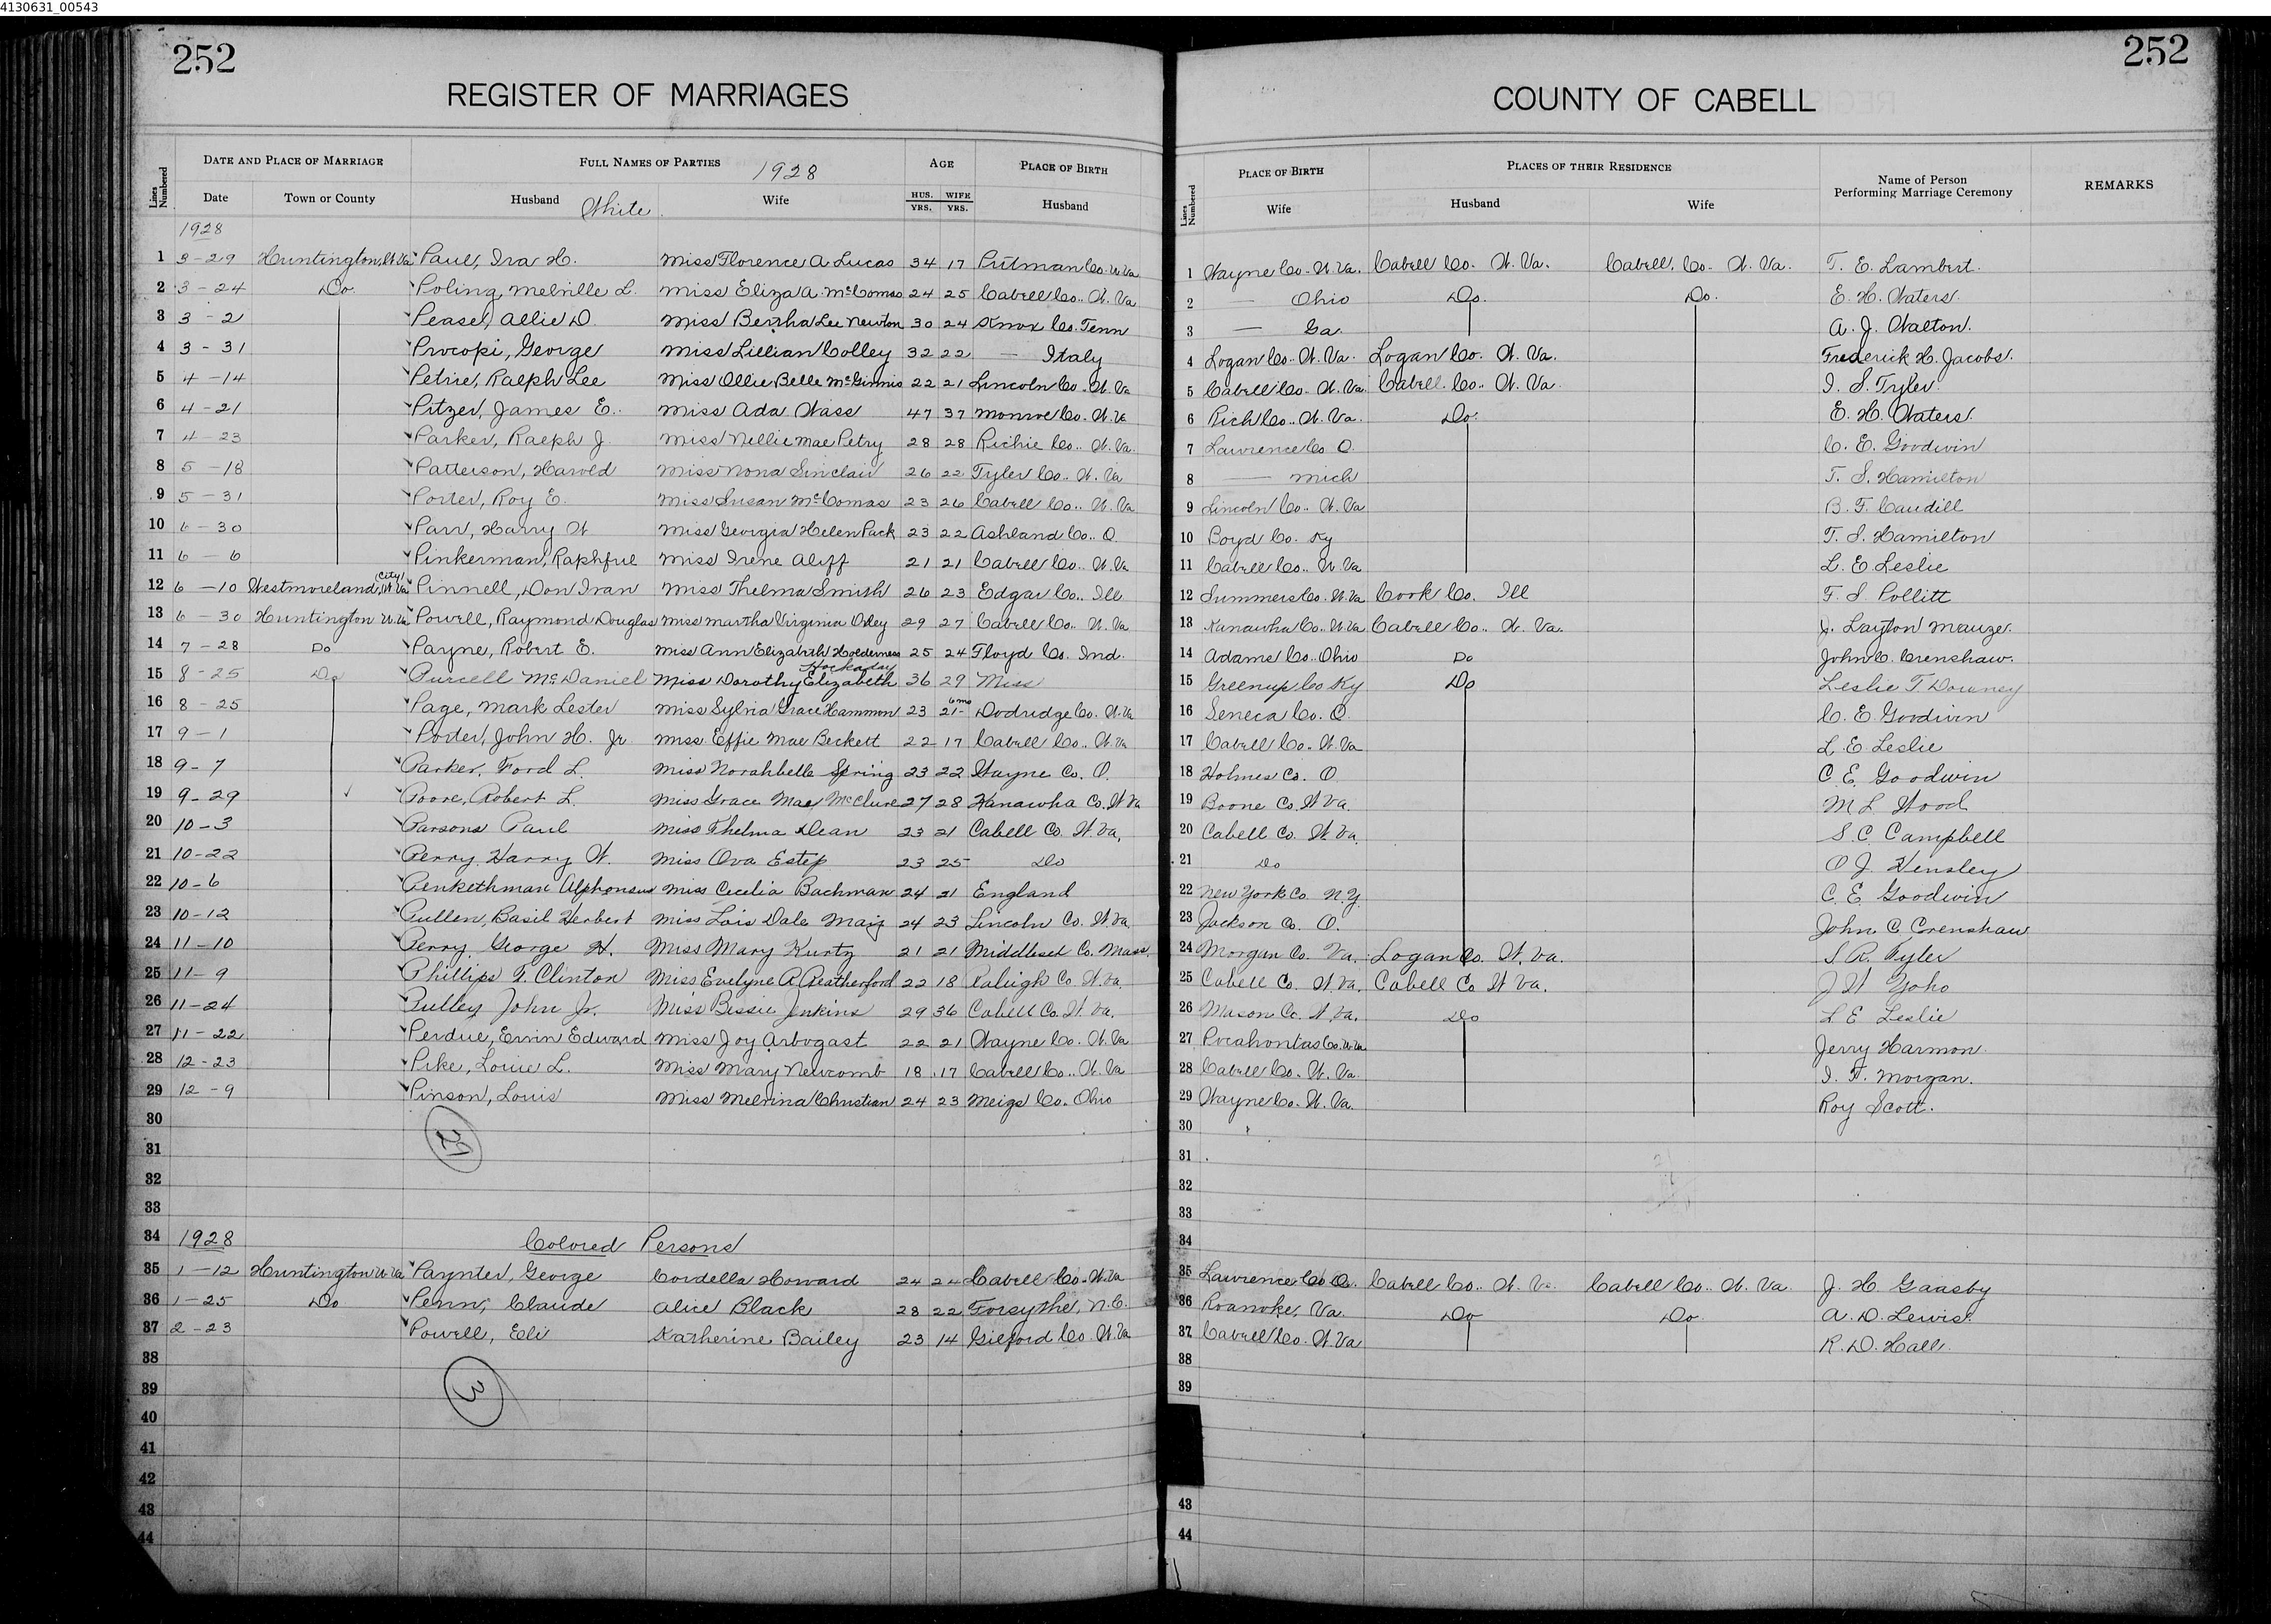 4130631_00543
252
REGISTER OF MARRIAGES
Lines Numbered
DATE AND PLACE OF MARRIAGE
FULL NAMES OF PARTIES 1928
AGE
PLACE OF BIRTH
Date Town or County Husband White Wife HUS. YRS. WIFE YRS. Husband
1928
1 3-29 Huntington, W Va Paul, Ira H. Miss Florence A Lucas 34 17 Putman Co. W Va
2 3-24 Do Poling, Melville L. Miss Eliza A. McComas 24 25 Cabell Co.. W. Va
3 3-2 Pease, Allie D. Miss Bertha Lee Newton 30 24 Knox Co. Tenn
4 3-31 Procopi, George Miss Lillian Colley 32 22 — Italy
5 4-14 Petrie, Ralph Lee Miss Ollie Belle McGinnis 22 21 Lincoln Co. W. Va
6 4-21 Pitzer, James E. Miss Ada Wass 47 37 Monroe Co. W. Va
7 4-23 Parker, Ralph J. Miss Nellie Mae Petry 28 28 Richie Co.. W. Va.
8 5-18 Patterson, Harold Miss Nona Sinclair 26 22 Tyler Co.. W. Va
9 5-31 Porter, Roy E. Miss Susan McComas 23 26 Cabell Co.. W. Va
10 6-30 Parr, Harry W Miss Georgia Helen Pack 23 22 Ashland Co.. O.
11 6-6 Pinkerman, Raphful Miss Irene Aliff 21 21 Cabell Co.. W. Va
12 6-10 Westmoreland, (City) W Va Pinnell, Don Ivan Miss Thelma Smith 26 23 Edgar Co.. Ill
13 6-30 Huntington W. Va Powell, Raymond Douglas Miss Martha Virginia Oxley 29 27 Cabell Co. W. Va
14 7-28 Do Payne, Robert E. Miss Ann Elizabeth Holderness 25 24 Floyd Co. Ind.
15 8-25 Do Purcell McDaniel Miss Dorothy Elizabeth Hockaday 36 29 Miss
16 8-25 Page, Mark Lester Miss Sylvia Grace Hammon 23 21- 6mo Dodridge Co. W. Va
17 9-1 Porter, John H. Jr Miss Effie Mae Beckett 22 17 Cabell Co.. W. Va
18 9-7 Parker, Ford L. Miss Norahbelle Spring 23 22 Wayne Co. O.
19 9-29 Poore, Robert L. Miss Grace Mae McClure 27 28 Kanawha Co. W Va
20 10-3 Parsons Paul Miss Thelma Dean 23 21 Cabell Co. W. Va,
21 10-22 Perry Harry W. Miss Ova Estep 23 25 Do
22 10-6 Penkethman Alphonsus Miss Cecelia Bachman 24 21 England
23 10-12 Pullen, Basil Herbert Miss Lois Dale 24 23 Lincoln Co. W. Va
24 11-10 Perry George H. Miss Mary Kurtz 21 21 Co. Mass.
25 11-9 Phillips T. Clinton Miss Evelyne A 22 18 Raleigh Co W. Va.
26 11-24 Pulley John Jr. Miss Bessie Jenkins 29 36 Cabell Co. W. Va.
27 11-22 Perdue, Ervin Edward Miss Joy Arbogast 22 21 Wayne Co. W. Va
28 12-23 Pike, Louie L. Miss Mary Newcomb 18 17 Cabell Co.. W. Va
29 12-9 Pinson, Louis Miss Melvina Christian 24 23 Meigs Co. Ohio
30
31
32
33
34 1928 Colored Persons
35 1-12 Huntington W Va Paynter, George Cordella Howard 24 24 Cabell Co. W. Va
36 1-25 Do Penn, Claude Alice Black 28 22 Forsythe, N.C.
37 2-23 Powell, Eli Katherine Bailey 23 14 Gilford Co. W. Va
38
39 3
40
41
42
43
44
252
COUNTY OF CABELL
Lines Numbered
PLACE OF BIRTH
PLACES OF THEIR RESIDENCE
Name of Person Performing Marriage Ceremony
REMARKS
Wife Husband Wife
1 Wayne Co. W. Va. Cabell Co. W. Va. Cabell. Co. W. Va. T. E. Lambert.
2 — Ohio Do. Do. E. H. Waters.
3 — Ga. A. J. Walton.
4 Logan Co. W. Va. Logan Co. W. Va. Frederick H. Jacobs.
5 Cabell Co. W. Va Cabell. Co.. W. Va I. S. Tyler
6 Rich Co.. W. Va. Do. E. H. Waters.
7 Lawrence Co O. C. E. Goodwin
8 — Mich T. S. Hamilton
9 Lincoln Co.. W. Va B. F. Caudill
10 Boyd Co. Ky T. S. Hamilton
11 Cabell Co.. W. Va L. E. Leslie
12 Summers Co. W. Va Cook Co. Ill F. S. Pollitt
13 Kanawha Co.. W. Va Cabell Co.. W. Va. J. Layton Mauze.
14 Adams Co. Ohio Do John C. Crenshaw.
15 Greenup Co Ky Do Leslie T. Downey
16 Seneca Co. O. C. E. Goodwin
17 Cabell Co. W. Va L. E. Leslie
18 Holmes Co. O C E. Goodwin
19 Boone Co. W Va. M L Wood
20 Cabell Co. W. Va. S. C. Campbell
21 Do O J. Hensley
22 New York Co. N.Y. C. E. Goodwin
23 Jackson Co. O. John C. Crenshaw
24 Morgan Co. Va. Logan Co. W. Va. S A. Tyler
25 Cabell Co. W. Va. Cabell Co W Va. J W Yoho
26 Mason Co. W. Va. Do L E Leslie
27 Pocahontas Co. W. Va Jerry Harmon.
28 Cabell Co. W. Va. I. F. Morgan.
29 Wayne Co. W. Va. Roy Scott.
30
31
32
33
34
35 Lawrence Co O. Cabell Co.. W. Va Cabell Co.. W. Va. J. H.
36 Roanoke, Va. Do Do A. D. Lewis.
37 Cabell Co. W. Va R. D. Hall.
38
39
43
44